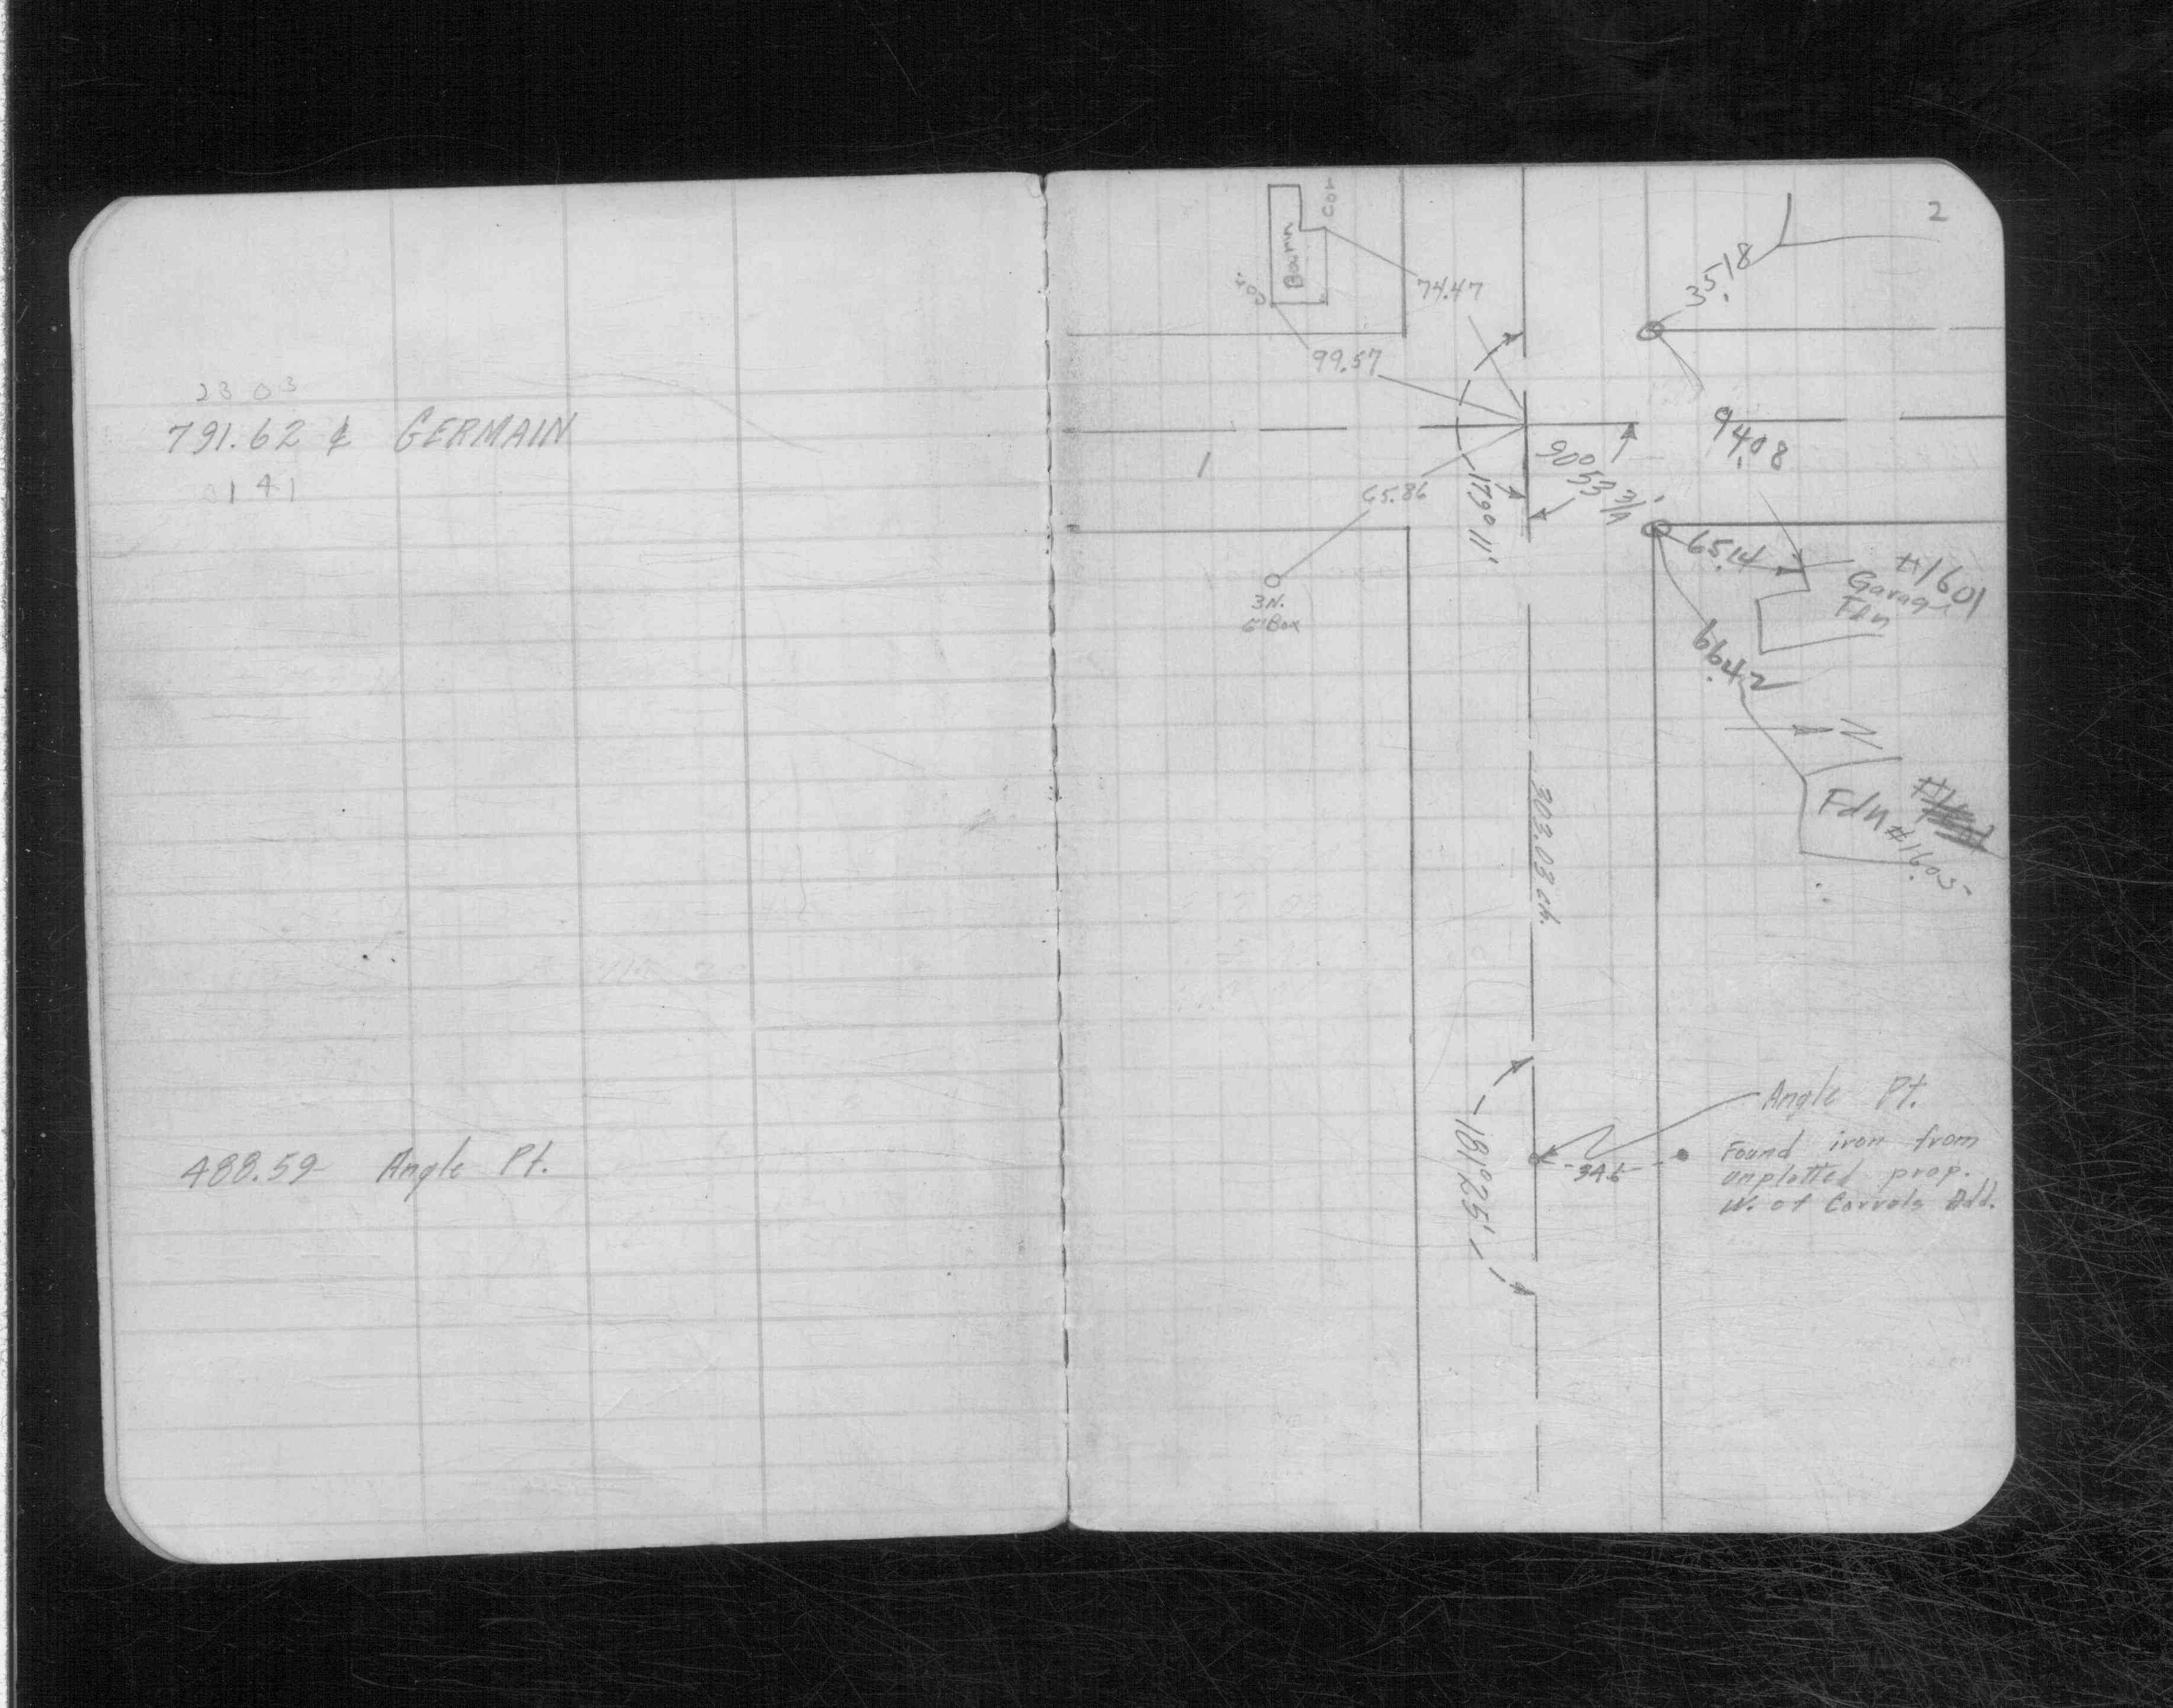 2303
791.62 ⅊ GERMAIN
0141
488.59 Angle Pt.
2
Cor
Barn
Cor.
74.47
99.57
35.18
94.08
1
90° 53 3/4'
179° 11'
65.86
3N.
6" Box
65.14
#1601
Garage
Fdn
66.42
N
Fdn
#1605
303.03 ch.
Angle Pt.
181° 25'
34.5
Found iron from
unplotted prop.
W. of Carrols Add.